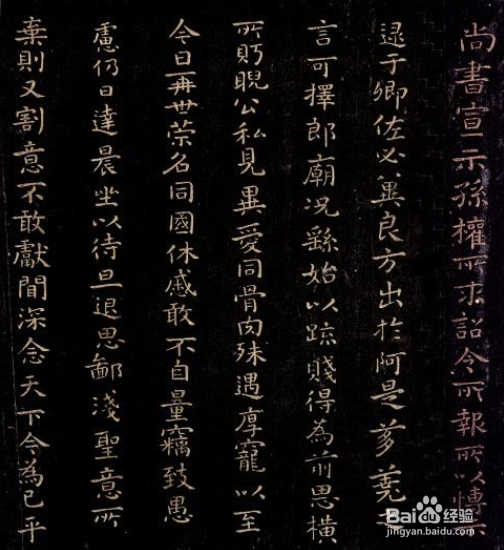 尚書宣示孫權所求詔令所報所以博示
逮于卿佐必冀良方出於阿是芻蕘之
言可擇郎廟況繇始以疏賤得為前恩橫
所眄睨公私見異愛同骨肉殊遇厚寵以至
今日再世榮名同國休慼敢不自量竊致愚
慮仍日達晨坐以待旦退思鄙淺聖意所
棄則又割意不敢獻聞深念天下今為已平
Baidu 经验
jingyan.baidu.com